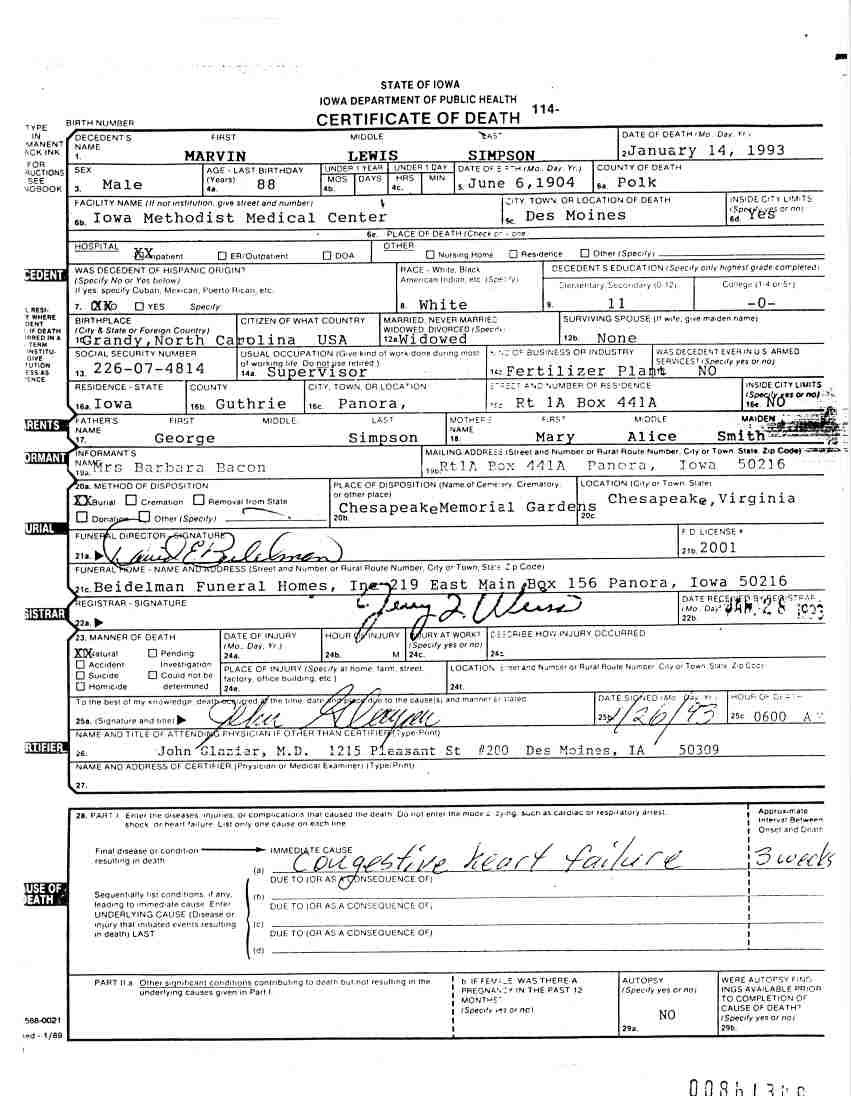 STATE OF IOWA
IOWA DEPARTMENT OF PUBLIC HEALTH
114-
CERTIFICATE OF DEATH
BIRTH NUMBER
TYPE
IN
MANENT
ACK INK
FOR
RUCTIONS
SEE
NDBOOK
DECEDENT'S NAME FIRST MIDDLE LAST DATE OF DEATH (Mo., Day, Yr.)
1. MARVIN LEWIS SIMPSON 2 January 14, 1993
SEX AGE - LAST BIRTHDAY (Years) UNDER 1 YEAR UNDER 1 DAY DATE OF BIRTH (Mo. Day, Yr.) COUNTY OF DEATH
MOS DAYS HRS MIN
3. Male 4a. 88 4b. 4c. 5. June 6,1904 6a. Polk
FACILITY NAME (If not institution, give street and number) CITY, TOWN OR LOCATION OF DEATH INSIDE CITY LIMITS (Specify yes or no)
6b. Iowa Methodist Medical Center 6c. Des Moines 6d. Yes
6e. PLACE OF DEATH (Check only one)
HOSPITAL OTHER
XX Inpatient ER/Outpatient DOA Nursing Home Residence Other (Specify)
CEDENT
WAS DECEDENT OF HISPANIC ORIGIN? RACE - White, Black, DECEDENT'S EDUCATION (Specify only highest grade completed)
(Specify No or Yes below) American Indian, etc. (Specify) Elementary, Secondary (0-12) College (1-4 or 5+)
If yes, specify Cuban, Mexican, Puerto Rican, etc.
7. XXNO YES Specify: 8. White 9. 11 -0-
BIRTHPLACE CITIZEN OF WHAT COUNTRY MARRIED, NEVER MARRIED, SURVIVING SPOUSE (If wife, give maiden name)
(City & State or Foreign Country) WIDOWED, DIVORCED (Specify)
Grandy,North Carolina USA 12a Widowed 12b. None
SOCIAL SECURITY NUMBER USUAL OCCUPATION (Give kind of work done during most of working life. Do not use retired.) KIND OF BUSINESS OR INDUSTRY WAS DECEDENT EVER IN U.S. ARMED SERVICES? (Specify yes or no)
13. 226-07-4814 14a. Supervisor Fertilizer Plant NO
RESIDENCE - STATE COUNTY CITY, TOWN, OR LOCATION STREET AND NUMBER OF RESIDENCE INSIDE CITY LIMITS (Specify yes or no)
16a. Iowa 16b. Guthrie 16c. Panora, Rt 1A Box 441A 16e. NO
RENTS
FATHER'S NAME FIRST MIDDLE LAST MOTHER'S NAME FIRST MIDDLE MAIDEN
17. George Simpson 18. Mary Alice Smith
ORMANT
INFORMANT'S NAME MAILING ADDRESS (Street and Number or Rural Route Number, City or Town, State, Zip Code)
19a. Mrs Barbara Bacon 19b. Rt1A Box 441A Panora, Iowa 50216
20a. METHOD OF DISPOSITION PLACE OF DISPOSITION (Name of Cemetery, Crematory, or other place) LOCATION (City or Town, State)
XX Burial Cremation Removal from State
Donation Other (Specify) 20b. Chesapeake Memorial Gardens 20c. Chesapeake, Virginia
URIAL
FUNERAL DIRECTOR - SIGNATURE F.D. LICENSE #
21a. David E Beidelman 21b. 2001
FUNERAL HOME - NAME AND ADDRESS (Street and Number or Rural Route Number, City or Town, State, Zip Code)
21c. Beidelman Funeral Homes, Inc 219 East Main Box 156 Panora, Iowa 50216
ISTRAR
REGISTRAR - SIGNATURE DATE RECEIVED BY REGISTRAR (Mo., Day)
22a. 22b. JAN 28 1993
23. MANNER OF DEATH DATE OF INJURY (Mo., Day, Yr.) HOUR OF INJURY INJURY AT WORK? DESCRIBE HOW INJURY OCCURRED
XX Natural Pending Investigation 24a. 24b. M 24c.
Accident
Suicide Could not be determined
Homicide
PLACE OF INJURY (Specify at home, farm, street, factory, office building, etc.) LOCATION Street and Number or Rural Route Number, City or Town, State, Zip Code
24e. 24f.
To the best of my knowledge, death occurred at the time, date and place due to the cause(s) and manner as stated. DATE SIGNED (Mo. Day, Yr.) HOUR OF DEATH
25a. (Signature and title) 25b. 1/26/93 25c 0600 A
RTIFIER
NAME AND TITLE OF ATTENDING PHYSICIAN IF OTHER THAN CERTIFIER (Type/Print)
26. John Glazier, M.D. 1215 Pleasant St #200 Des Moines, IA 50309
NAME AND ADDRESS OF CERTIFIER (Physician or Medical Examiner) (Type/Print)
27.
28. PART I. Enter the diseases, injuries, or complications that caused the death. Do not enter the mode of dying, such as cardiac or respiratory arrest, shock, or heart failure. List only one cause on each line.
Approximate Interval Between Onset and Death
Final disease or condition resulting in death IMMEDIATE CAUSE
(a) Congestive heart failure 3 weeks
DUE TO (OR AS A CONSEQUENCE OF)
USE OF
EATH
Sequentially list conditions, if any, leading to immediate cause. Enter UNDERLYING CAUSE (Disease or injury that initiated events resulting in death) LAST
(b)
DUE TO (OR AS A CONSEQUENCE OF)
(c)
DUE TO (OR AS A CONSEQUENCE OF)
(d)
PART II.a. Other significant conditions contributing to death but not resulting in the underlying causes given in Part I
b. IF FEMALE: WAS THERE A PREGNANCY IN THE PAST 12 MONTHS? (Specify yes or no)
AUTOPSY (Specify yes or no)
29a. NO
WERE AUTOPSY FINDINGS AVAILABLE PRIOR TO COMPLETION OF CAUSE OF DEATH? (Specify yes or no)
29b.
588-0021
ed - 1/89